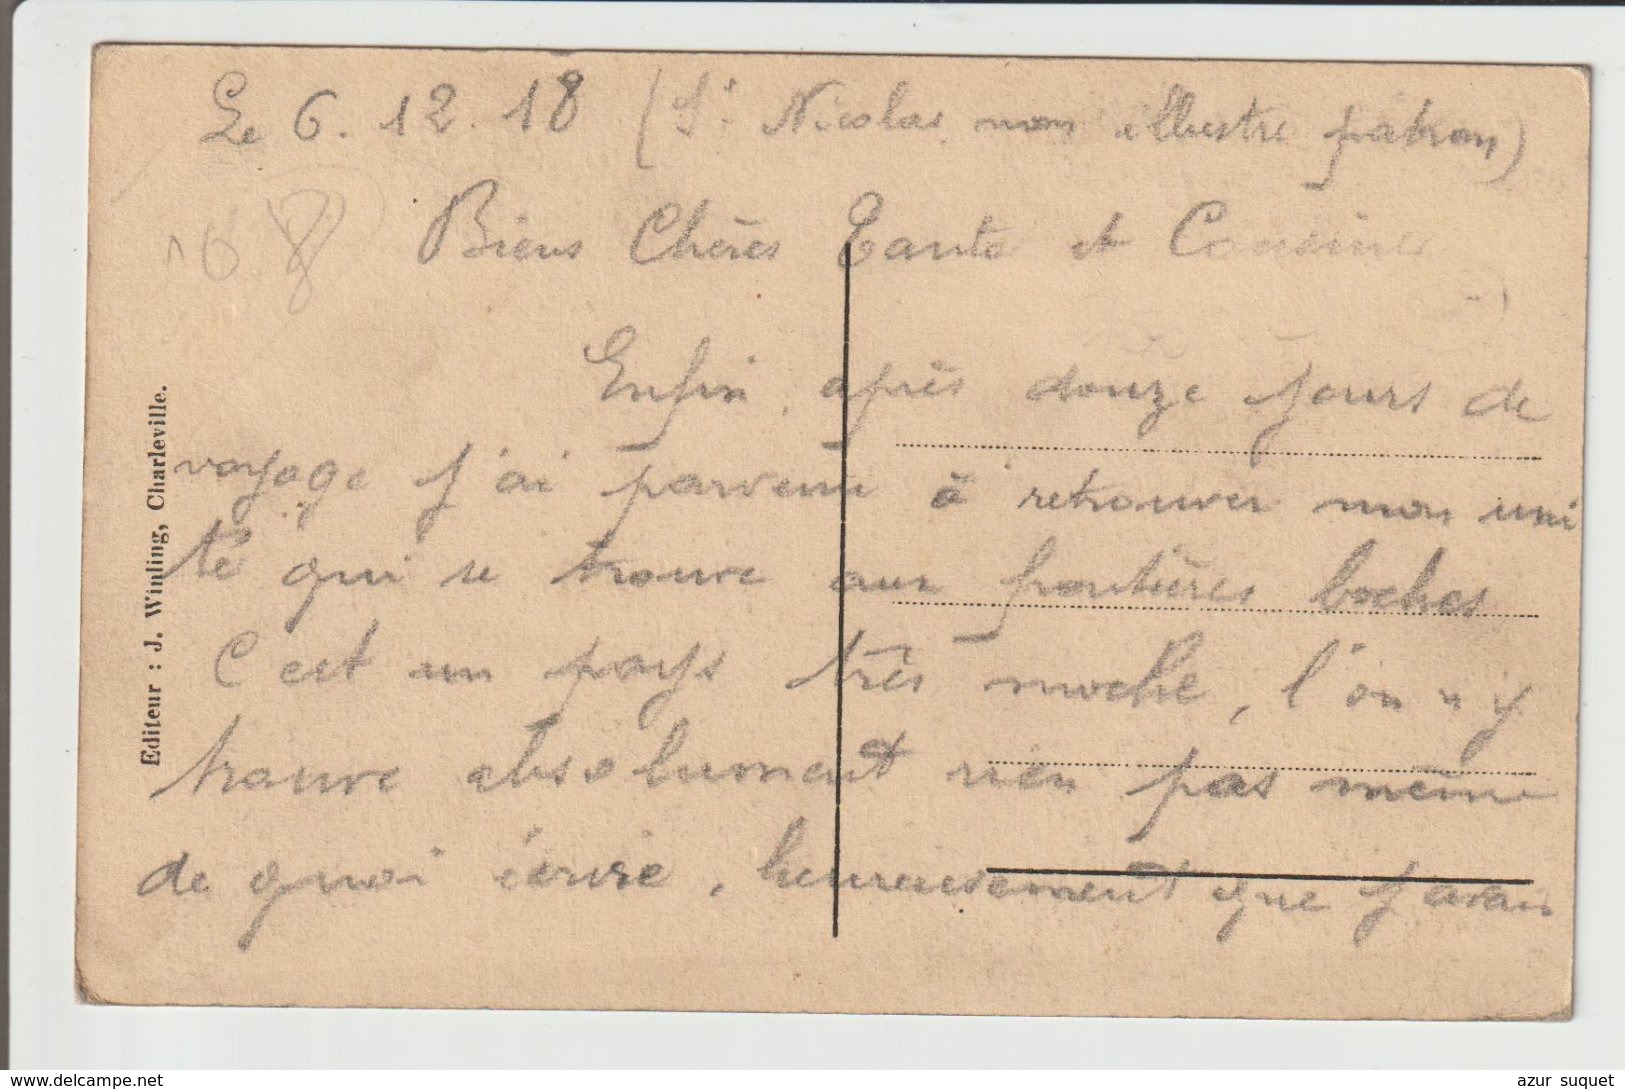 Le 6.12.18 (St Nicolas mon illustre patron)
168
Biens Chères Tante et Cousines
Enfin, après douze jours de
voyage j'ai parvenu à retrouver mon uni
té qui se trouve aux frontières boches
C'est un pays très moche, l'on n'y
trouve absolument rien pas même
de quoi écrire, heureusement que j'avais
Editeur : J. Winling, Charleville.
azur suquet